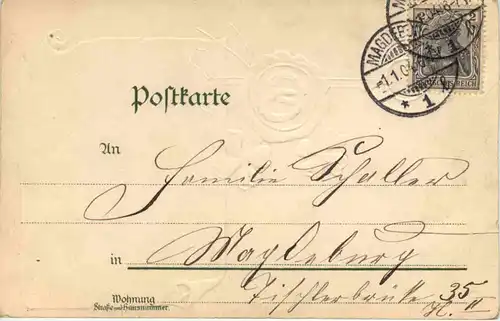 MAGDEBURG
1.1.04
* 1
REICH
Postkarte
An
Familie Schaller
in Magdeburg
Wohnung
Straße und Hausnummer
Tischlerbrücke 35
II